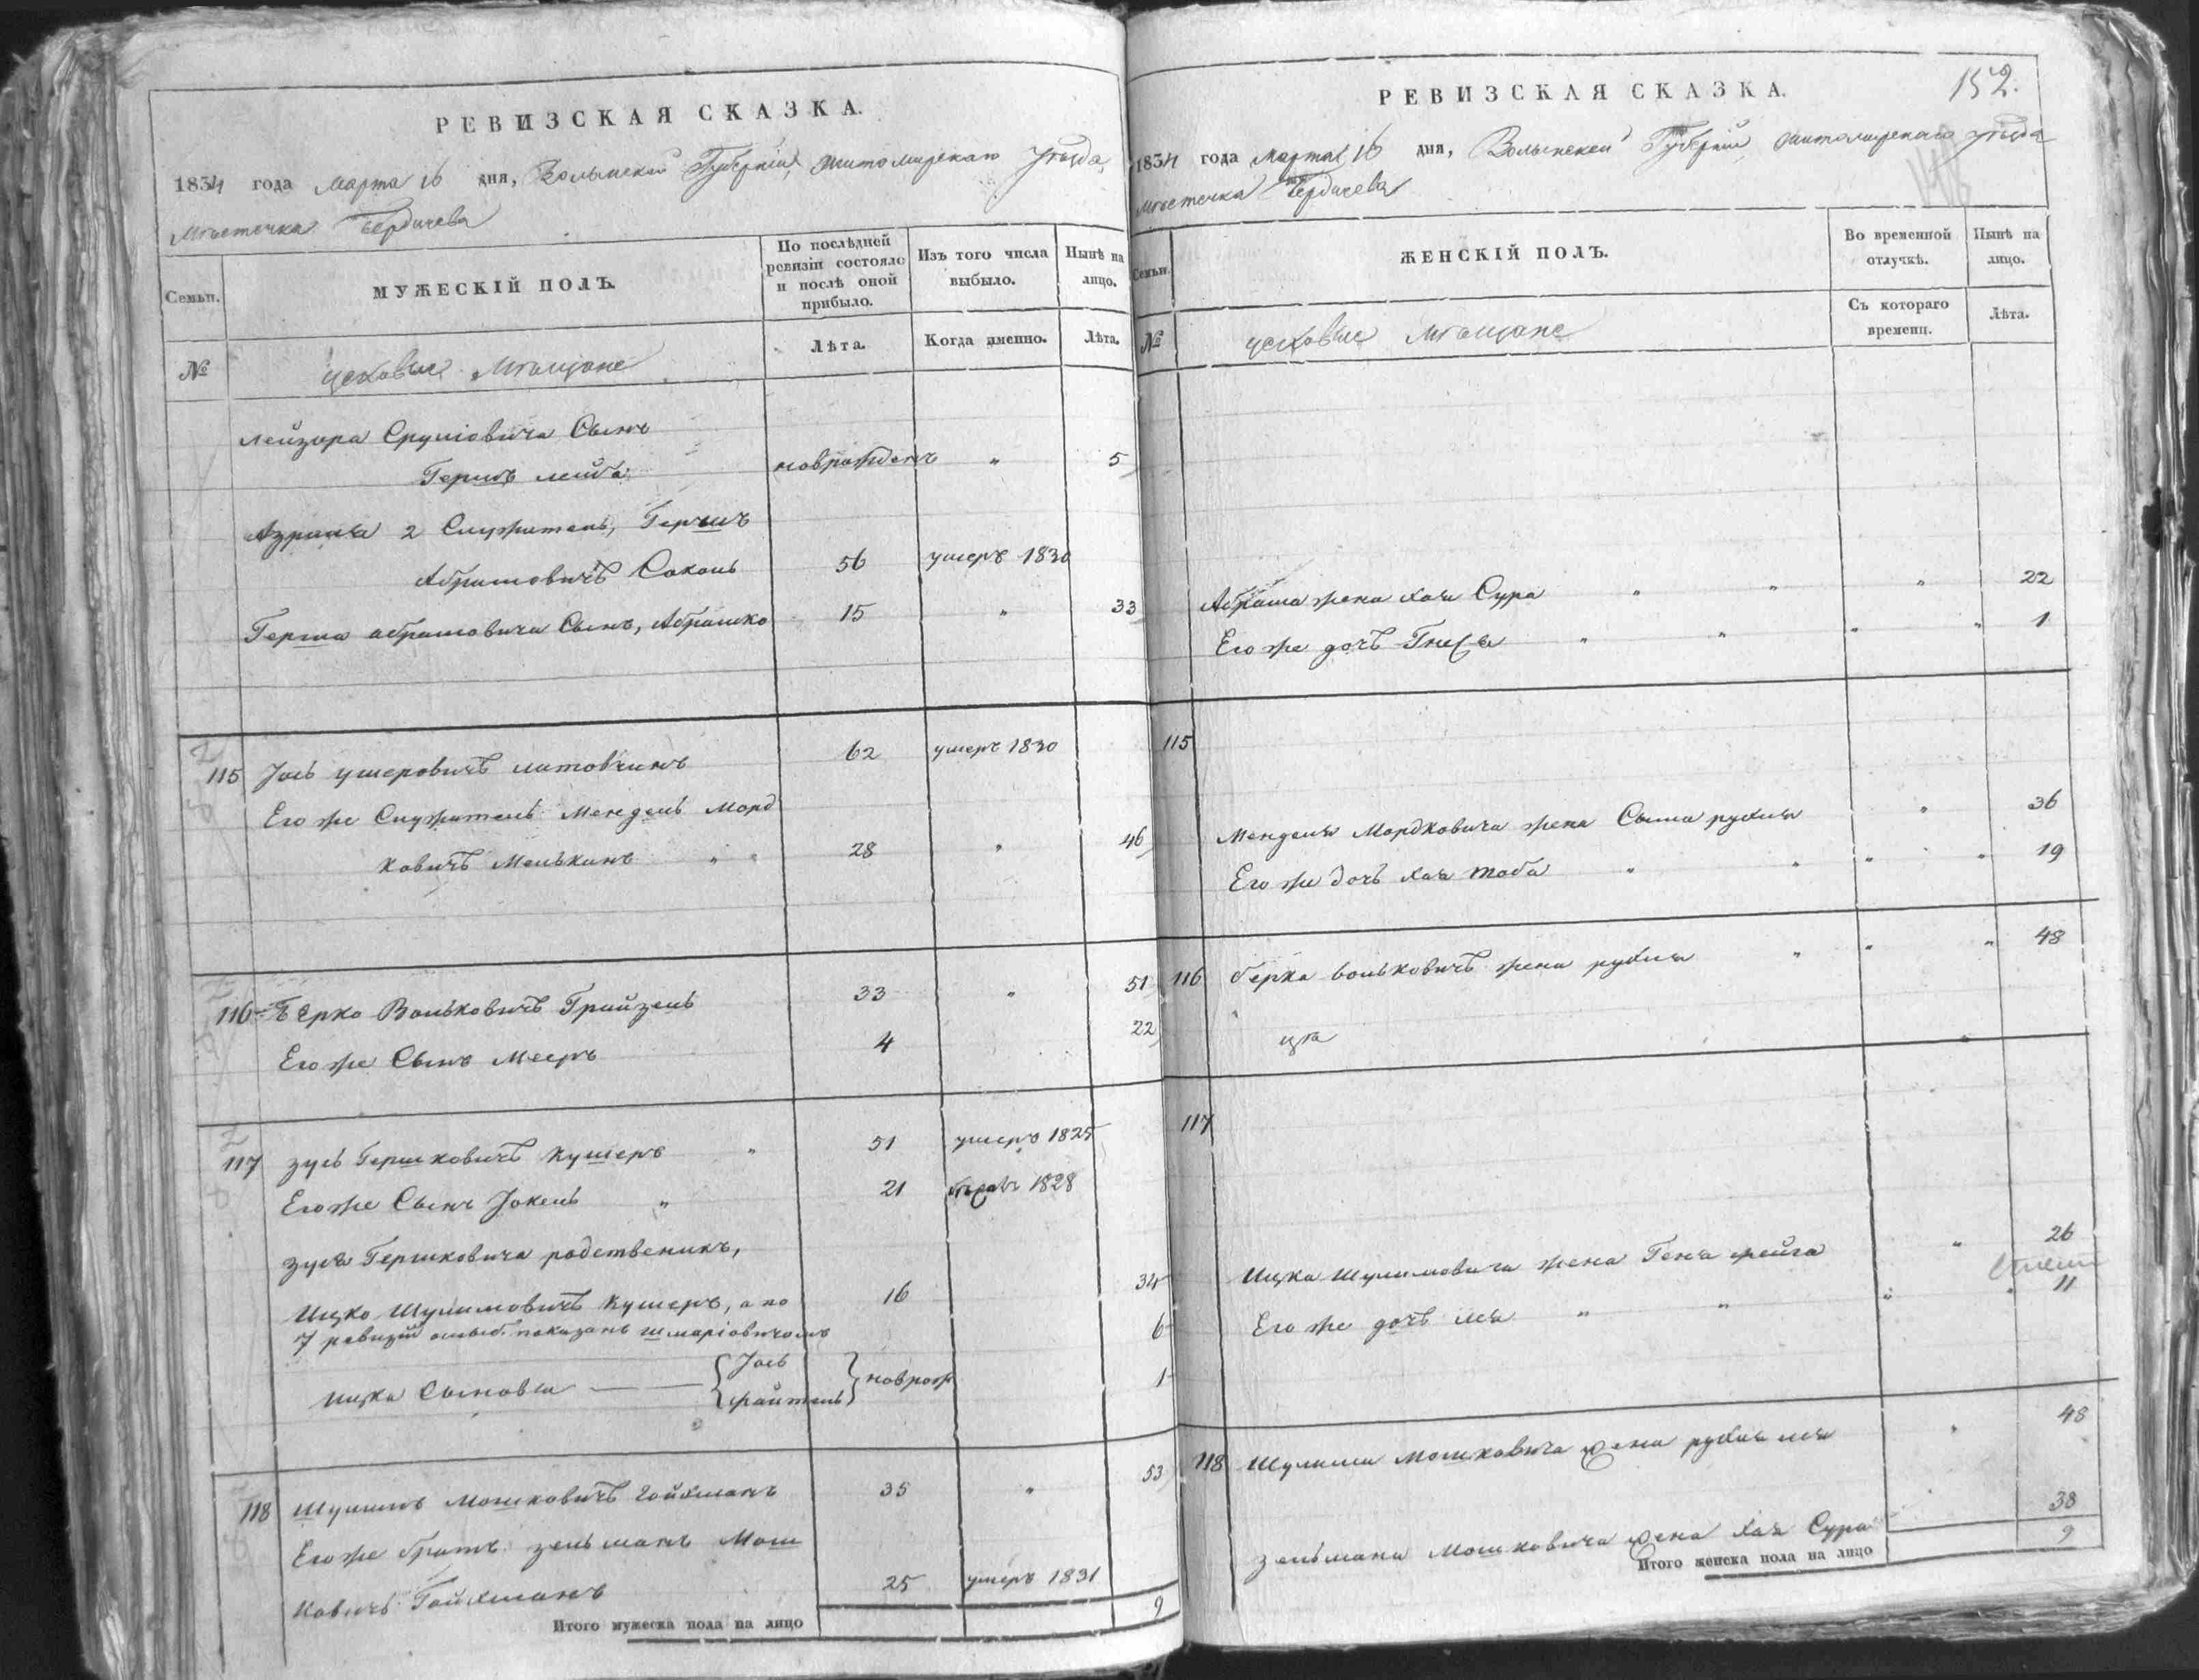 РЕВИЗСКАЯ СКАЗКА.
1834 года Марта 16 дня, Волынской Губернии, Житомирскаго уѣзда,
Мѣстечка Бердичева
Семьи.
МУЖЕСКІЙ ПОЛЪ.
По послѣдней ревизіи состояло и послѣ оной прибыло.
Изъ того числа выбыло.
Нынѣ на лицо.
№
цеховые Мѣщане
Лѣта.
Когда именно.
Лѣта.
Лейзора Сруліовича Сынъ
Гершъ лейба новрожденъ " 5
2 Служитель, Гершъ
Абрамовичъ Соколъ 56 умеръ 1830
Герша абрамовича Сынъ, Абрашко 15 " 33
115 Іось ушеровичъ литовчинъ 62 умеръ 1830
Его же Служитель Мендель Морд
ковичъ Менькинъ " " 28 " 46
116 Берко Вольковичъ Грайзель 33 " 51
Его же Сынъ Мееръ 4 22
117 Зусь Гершковичъ Кушеръ " 51 умеръ 1825
Его же Сынъ Іокель " 21 1828
Зуся Гершковича родственикъ,
Ицко Шулимовичъ Кушеръ, а по 16 34
7 ревизіи ошыб. показанъ шмаріовичомъ 6
Ицка Сыновья { Іось
файтель } новрож 1
118 Шулимъ Мошковичъ Гойхманъ 35 " 53
Его же братъ зельманъ Мош
ковичъ Гойхманъ 25 умеръ 1831
Итого мужеска пола на лицо 9
РЕВИЗСКАЯ СКАЗКА.
152.
1834 года Марта 16 дня, Волынской Губерніи Житомирскаго уѣзда
Мѣстечка Бердичева
Семьи.
ЖЕНСКІЙ ПОЛЪ.
Во временной отлучкѣ.
Нынѣ на лицо.
№
цеховые Мѣщане
Съ котораго времени.
Лѣта.
Абраша жена хая Сура " " " 22
Его же дочь Гнеся " " " " 1
115
Менделя Мордковича жена Сыма рухля " 36
Его же дочь хая тоба " " " " 19
116 берка вольковичъ жена рухля " " " 48
117
Ицка Шулимовича жена Геня фейга " 26
Его же дочъ лея " " " " 11
118 Шулима Мошковича жена рухля лея " 48
зельмана Мошковича жена хая Сура 38
Итого женска пола на лицо 9